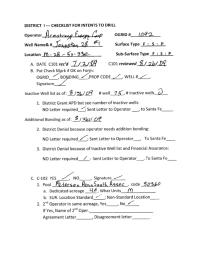 DISTRICT 1 --- CHECKLIST FOR INTENTS TO DRILL
Operator Armstrong Energy Corp OGRID # 1092
Well Name& # Johnston 28 #1 Surface Type F - S - P
Location Sub-Surface Type F - S - P
A. DATE C101 rec'd 7/2/09 C101 reviewed
B. Put Check Mark if OK on Form:
OGRID ✓, BONDING ✓, PROP CODE ✓, WELL # ✓,
Signature ✓
Inactive Well list as of: # well 75, # Inactive wells 0
1. District Grant APD but see number of inactive wells:
NO Letter required ✓; Sent Letter to Operator ___, to Santa Fe___
Additional Bonding as of
2. District Denial because operator needs addition bonding:
NO Letter required ✓; Sent Letter to Operator ___, To Santa Fe___
3. District Denial because of Inactive Well list and Financial Assurance:
NO Letter required ✓; Sent Letter to Operator___, To Santa Fe___
C. C-102 YES ✓, NO___, Signature ✓
1. Pool Peterson Penn South Assoc, Code
a. Dedicated acreage 40, What Units M
b. SUR. Location Standard ✓; Non-Standard Location___
2. 2nd Operator in same acreage, Yes___, No ✓
If Yes, Name of 2nd Oper.
Agreement Letter ___, Disagreement letter ___